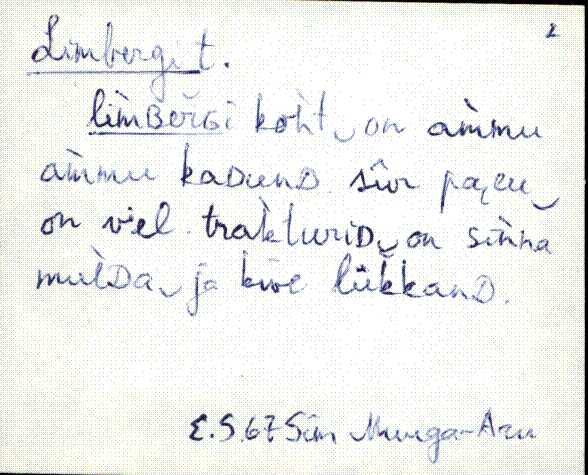 2
Limbergi t.
lìmBeřGi koh̀t on am̀mu
am̀mu kaDunD. sûr paeu
on viel. trak̀turiD on siǹna
mul̀Da ja kive lük̀kanD.
E.S. 67 Sim Muuga-Aru